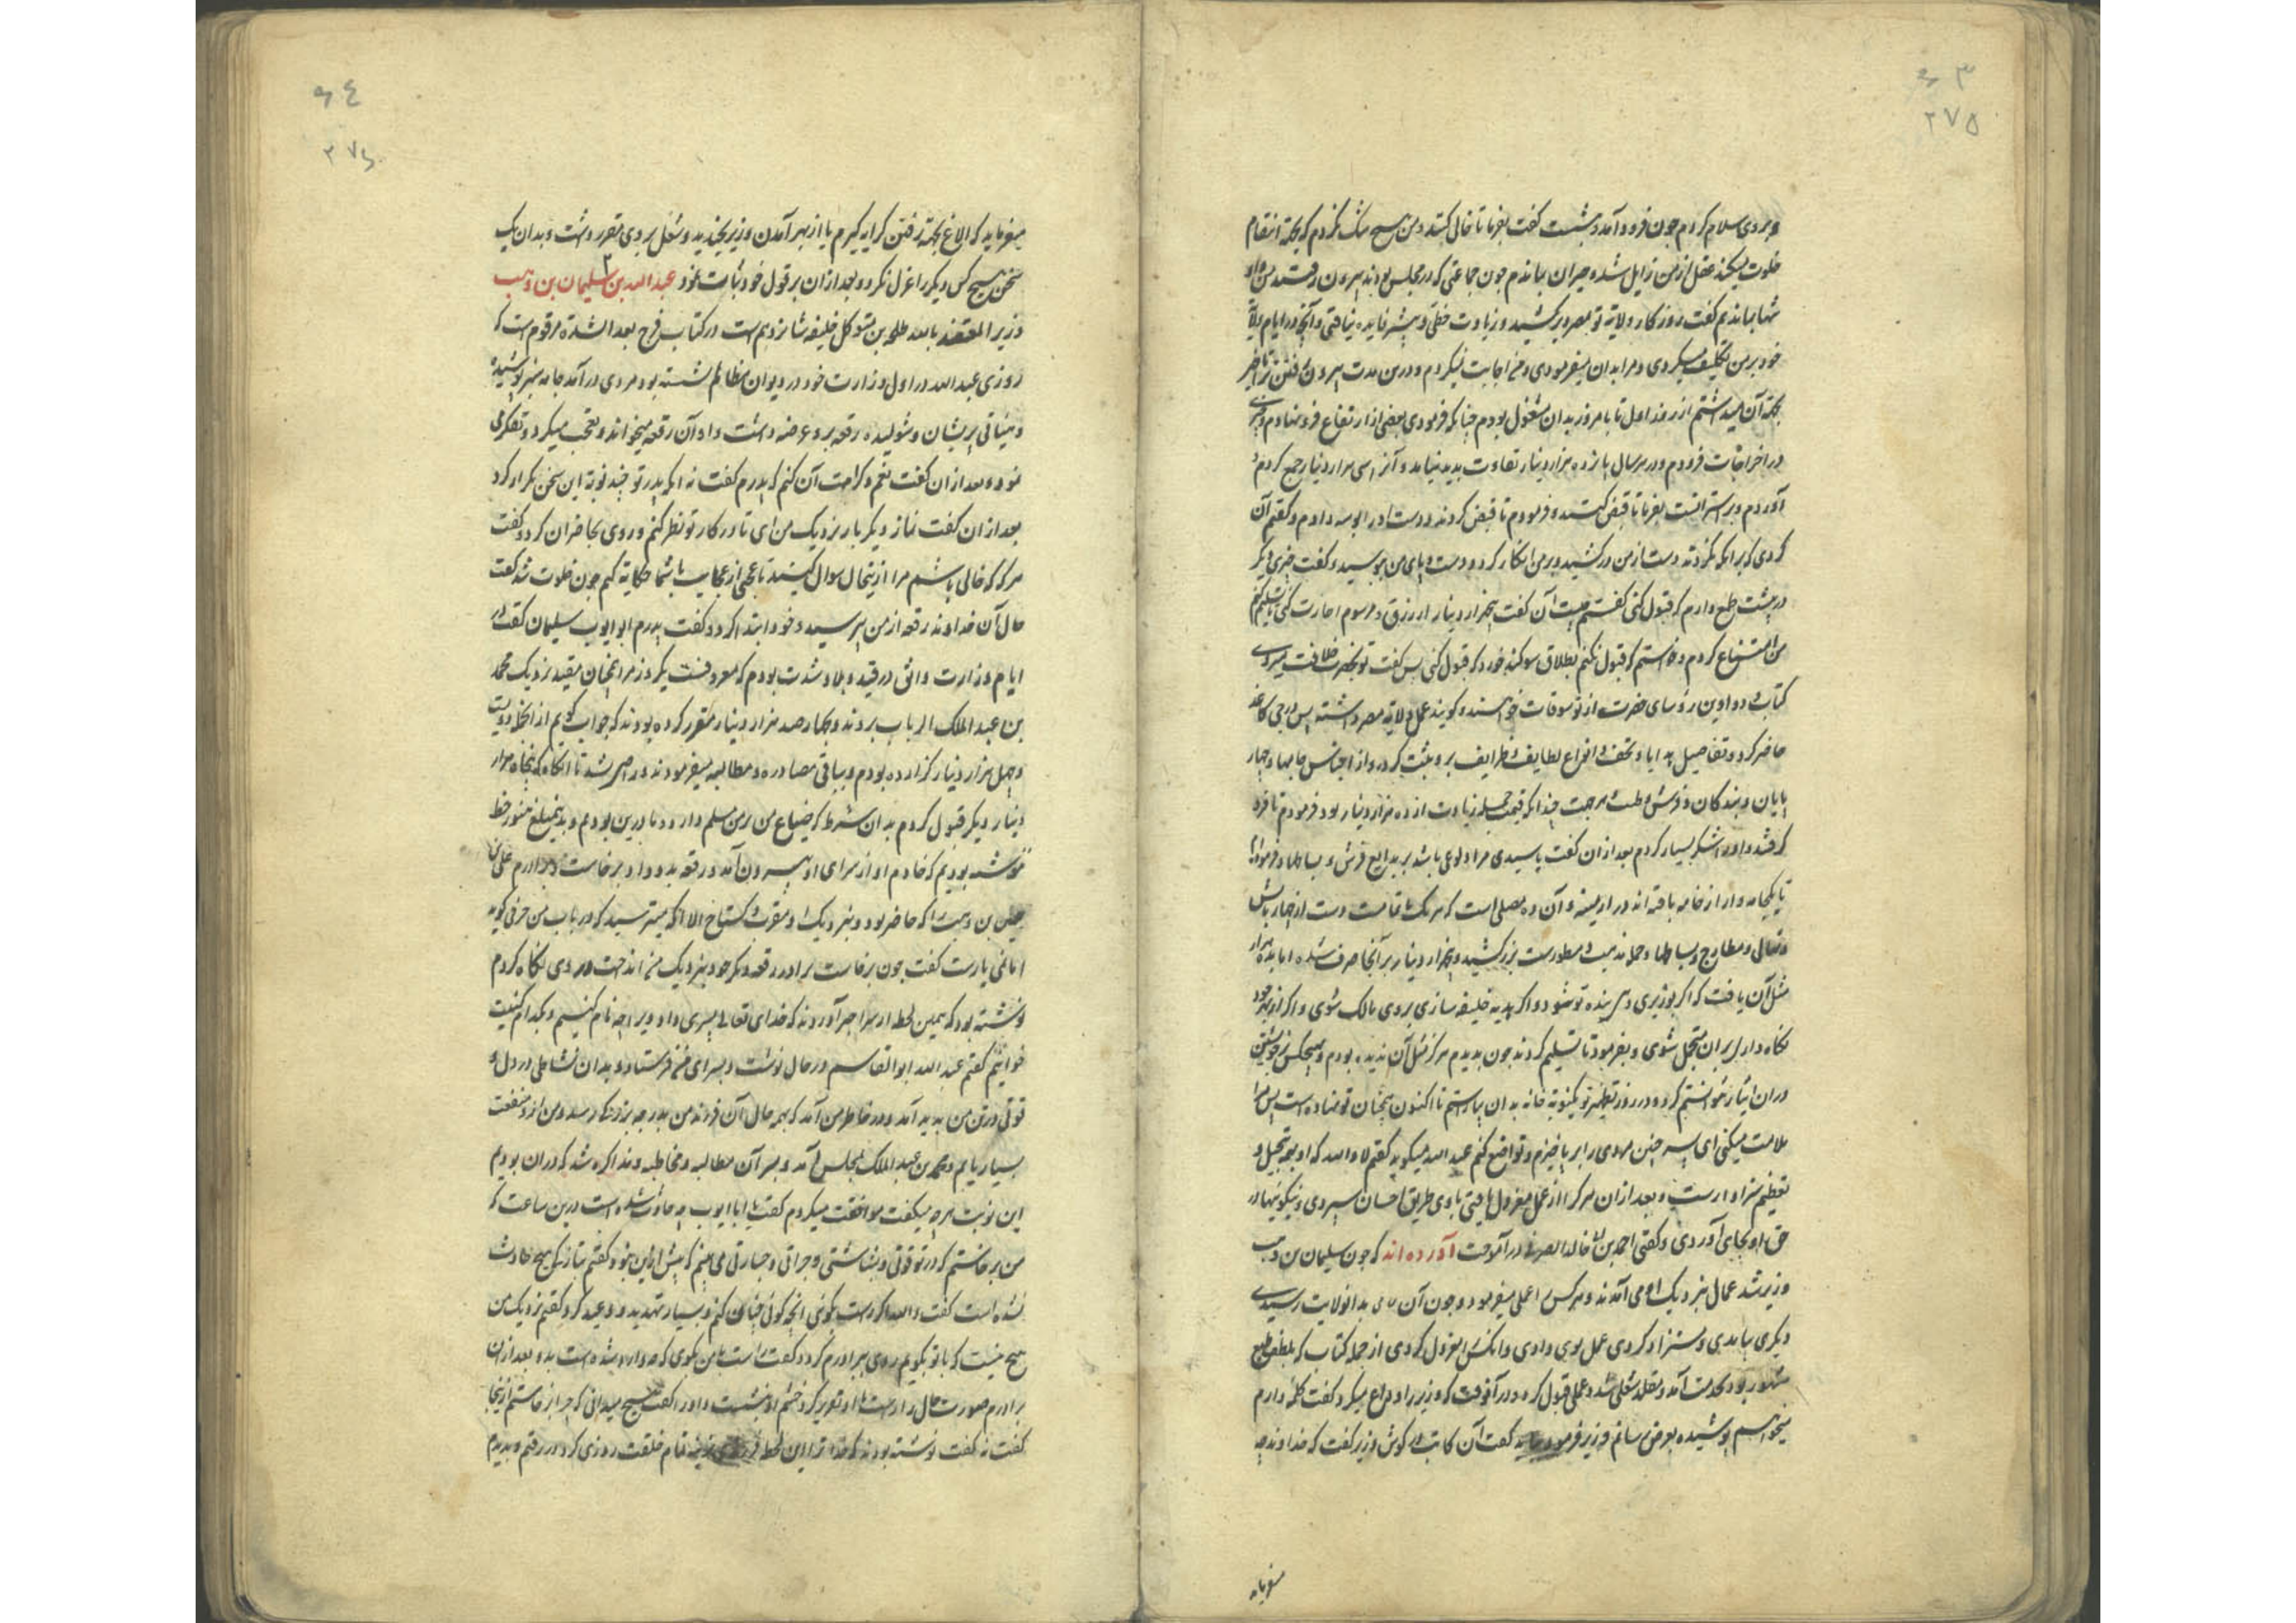 ۳
۲۷۵
و بر وی سلام کردم چون فرود آمد و بنشست گفت بفرما تا خالی کنند و من هیچ شک نکردم که بجهة انتقام
خلوت میکند عقل از من زایل شده حیران بماندم چون جماعتی که در مجلس بودند بیرون رفتند من و او
تنها بماندیم گفت روزگار ولایة تو بمصر دیر کشید و زیادت حظی و بیشتر فایده نیافتی و آنچه در ایام ولایة
خود بر من تکلیف میکردی و مرا بدان میفرمودی و من اجابت نمیکردم و درین مدت بیرون رفتن تاخیر
بجهة آن میداشتم از روز اول تا بامروز بدان مشغول بودم چنانکه فرمودی بعضی از ارتفاع فرو نهادم و
در اخراجات فزودم و در هر سال پانزده هزار دینار تفاوت پدید نیامد و آنرا سی هزار دینار جمع کردم و
آوردم و بر استر است بفرما تا قبض کنند و فرمودم تا قبض کردند و دست او را بوسه دادم و گفتم آن
کردی که برامکه نکردند دست از من درکشید و بر من انکار کرد و دست و پای من ببوسید و گفت چیزی دیگر
درپیشت طمع دارم که قبول کنی گفتم چیست آن گفت پنجهزار دینار از رزق و رسوم اجازت کنی تا تسلیم کنم
من امتناع کردم و خواستم که قبول نکنم بطلاق سوگند خورد که قبول کنی پس گفت تو بحضرت خلافت میروی
کتاب و دواوین رؤسای حضرت از تو توقعات خواهند و گویند عمل ولایة مصر داشته پس درجی کاغذ
حاضر کرد و تفاصیل هدایا و تحف و انواع لطایف و ظرایف برو ثبت کرده و از اجناس جامها و چهار
پایان و بندگان و فرش و طیب هر جهت چندانکه قیمت جمله زیادت از ده هزار دینار بود فرمودم تا فرو
گرفتند و او را شکر بسیار کردم بعد از آن گفت یا سیدی مرا ولوعی باشد بر بدایع فرش و بساطها و فرموده‌ام
تا یکخانه وار از خامه بافته‌اند در ارمینیه و آن ده مصلی است که هر یک با تمامت دست از چهار بالش
و نهالی و مطارح و بساطها و جمله مذهب و مطورست بزر کشیده و پنجهزار دینار بر آنجا صرف شده اما بده هزار
مثل آن یافت که اگر بوزیری دهی بنده تو شود و اگر هدیه خلیفه سازی بروی مالک شوی و اگر از بهر خود
نگاه داری بران متجمل شوی و بفرمود تا تسلیم کردند چون بدیدم هرگز مثل آن ندیده بودم و بهیچکس بر خویشتن
دران ایثار نتوانستم کرد و در روز تطهیر تو یکنوبة خانه بدان بیاراستم تا اکنون همچنان تو نهاده است پس مرا
ملامت میکنی ای پسر چنین مردی را برپا خیزم و تواضع کنم عبد الله میگوید گفتم لا والله که او بهمه تبجیل و
تعظیم سزاوارست و بعد ازان هر کرا از عمل معزول یافتی با وی طریق احسان سپردی و نیکوئیها در
حق او بجای آوردی و گفتی احمد بن خالد الصریفی در آموخت آورده‌اند که چون سلیمان بن وهب
وزیر شد عمال بنزدیک او می‌آمدند و هر کس را عملی میفرمود و چون آن کس بدانولایت رسیدی
دیگری بیامدی و مستزاد کردی عمل بوی دادی و آنکس را معزول کردی از جمله کتاب که بلطف طبع
مشهور بود بخدمت آمد و تقلد شغلی شد و عملی قبول کرد در آنوقت که وزیر را وداع میکرد گفت کلمه دارم
میخواهم پوشیده بعرض رسانم وزیر فرمود بیا گفت آن کاتب در گوش وزیر گفت که خداوند چه
میفرماید
۹٤
۲۷۶
میفرماید که الاغ بجهة رفتن کرایه گیرم یا از بهر آمدن وزیر بخندید و شغل بر وی مقرر داشت و بدان یک
سخن هیچ کس دیگر را عزل نکرد و بعد ازان بر قول خود ثبات نمود عبد الله بن سلیمان بن وهب
وزیر المعتضد بالله طلحه بن متوکل خلیفه شانزدهم است در کتاب فرج بعد الشدة مرقوم است که
روزی عبد الله در اول وزارت خود در دیوان مظالم نشسته بود مردی در آمد جامه سبز پوشیده
و میثاقی پریشان و شولیده رقعه برو عرضه داشت و او آن رقعه میخواند و تعجب میکرد و تفکر می
نمود و بعد ازان گفت نعم و کرامت آن کنم که پدرم گفت نه آنکه پدر تو چند نوبة این سخن تکرار کرد
بعد ازان گفت نماز دیگر بار نزدیک من آی تا در کار تو نظر کنم و روی بحاضران کرد و گفت
هرگه که خالی باشم مرا ازینحال سوال کنید تا عجبی از عجایب با شما حکایة کنم چون خلوت شد گفت
حال آن خداوند رقعه از من بپرسید و خود ابتدا کرد و گفت پدرم ابو ایوب سلیمان گفت در
ایام وزارت واثق در قید و بلا و شدت بودم که معروفست یکروز مرا همچنان مقید نزدیک محمد
بن عبد الملک الزیات بردند و چهارصد هزار دینار مقرر کرده بودند که جواب گویم از آنجمله دویست
و چهل هزار دینار گزارده بودم و بباقی مصادره و مطالبه میفرمودند و راضی شد تا آنگاه که پنجاه هزار
دینار دیگر قبول کردم بدان شرط که ضیاع من بر من مسلم دارد و ما درین بودیم و بدین مبلغ هنوز خط
ننوشته بودیم که خادم او از سرای او بیرون آمد و رقعه بدو داد و برخاست و برادرم علی
حسن بن وهب را که حاضر بود و بنزدیک او مقرب و گستاخ الا آنکه میترسید که در باب من حرفی گوید
اما لغی یارست گفت چون برخاست برادر رقعه دیگر خود بنزدیک من انداخت در وی نگاه کردم
نوشته بود که همین لحظه از سرا خبر آوردند که خدای تعالی پسری داد ویرا چه نام کنیم و بکدام کنیت
خوانیم گفتم عبد الله ابو القاسم در حال نوشت و بسرای من فرستاد و بدان نشاطی در دل و
قوتی در تن من پدید آمد و در خاطر من آمد که بهمه حال آن فرزند من بدرجه بزرگ رسد و من ازو منفعت
بسیار یابم و محمد بن عبد الملک بمجلس آمد و بسر آن مطالبه و مخاطبه و مذاکره شد که دران بودیم
این نوبت هرچه میگفت موافقت میکردم گفت یا ابا ایوب چه حادث شده است درین ساعت که
من برخاستم که در تو قوتی و بشاشتی و جراتی و جسارتی می‌بینم که پیش ازین نبود گفتم بتازگی هیچ حادث
نشده است گفت والله اگر راست نگوئی آنچه گوئی چنان کنم و بسیار تهدید و وعید کرد گفتم نزدیک من
هیچ نیست که با تو بگویم روی ببرادرم کرد و گفت راست با من بگوی که چه وارد شده است بدو بعد ازان
برادرم صورت حال براستی با او تقریر کرد خشم او بنشست و او را گفت هیچ میدانی که چرا برخاستم ازینجا
گفت نه گفت نوشته بودند که خدا ترا این لحظه تمام خلقت روزی کرد در رفتم و بدیدم